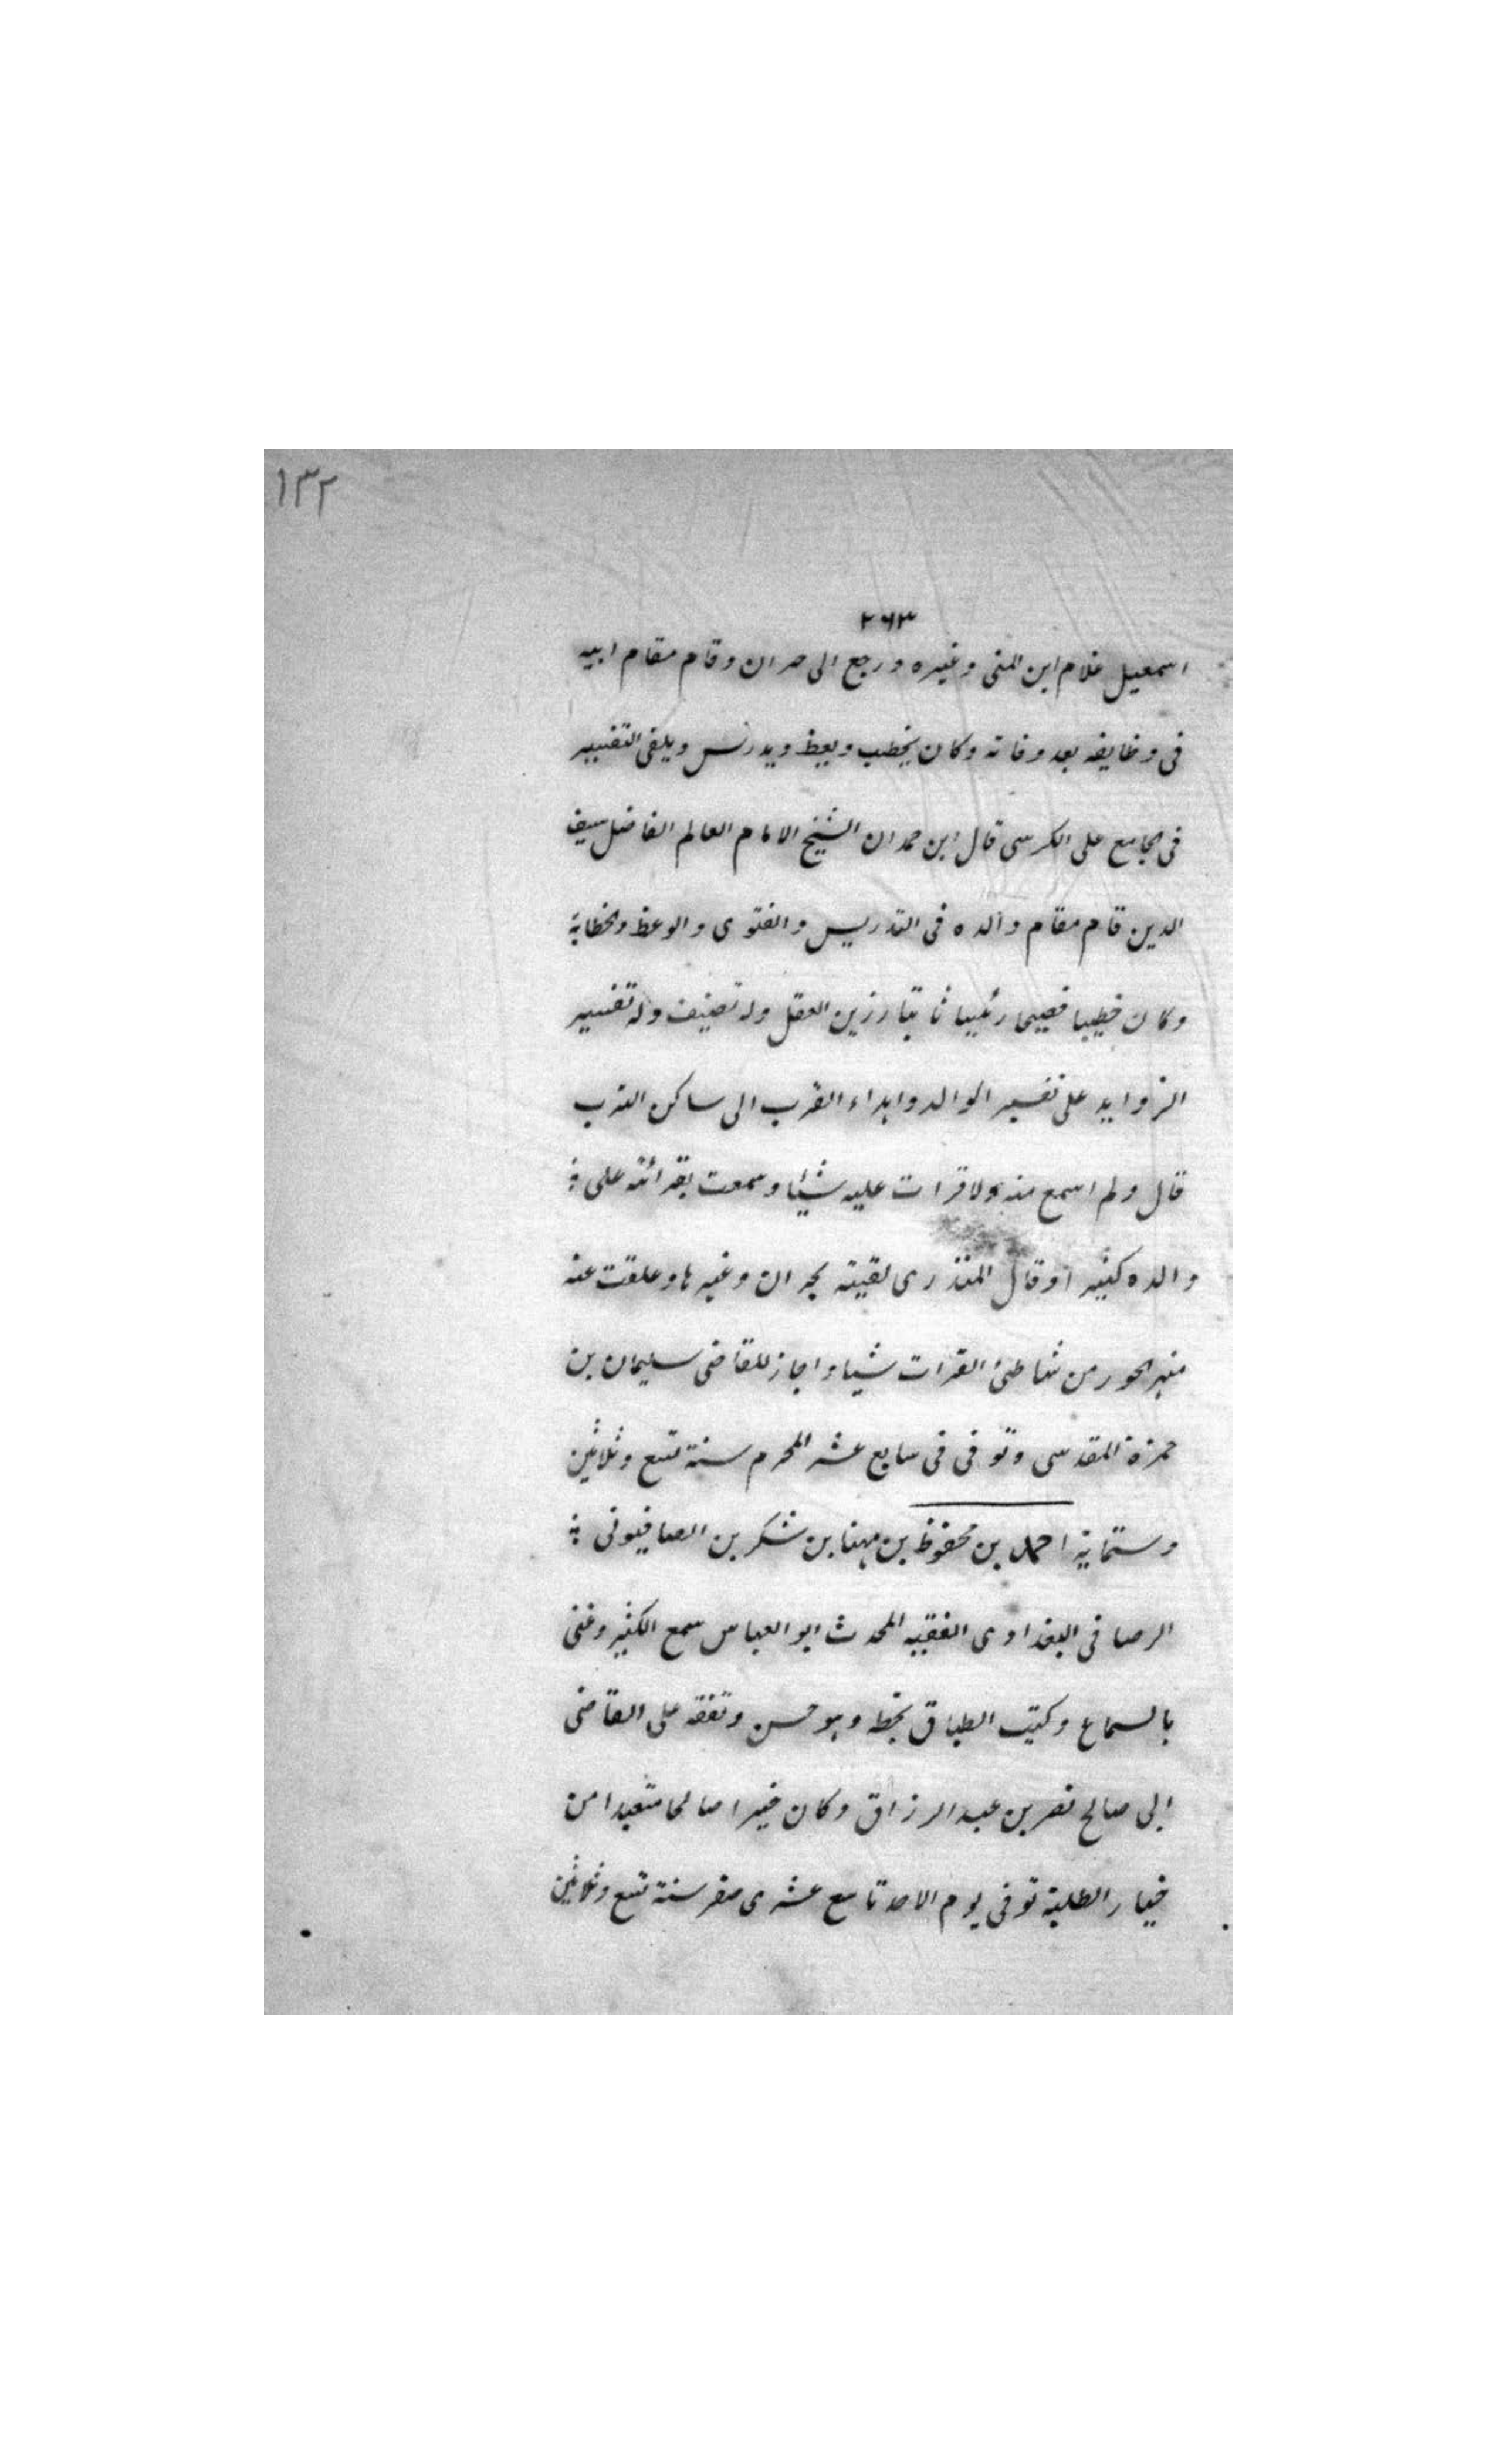 ١٣٢
٢٦٣
اسمعيل غلام ابن المنى وغيره ورجع الى حران وقام مقام ابيه
فى وظايفه بعد وفاته وكان يخطب ويعظ ويدرس ويلقى التفسير
فى الجامع على الكرسى قال ابن حمدان الشيخ الامام العالم الفاضل سيف
الدين قام مقام والده فى التدريس والفتوى والوعظ والخطابة
وكان خطيبا فصيحا رئيسا ثابتا رزين العقل وله تصنيف وله تفسير
الزوايد على تفسير الوالد واهداء القرب الى ساكن الترب
قال ولم اسمع منه ولا قرات عليه شيئا وسمعت بقرائته على
والده كثيرا وقال المنذرى لقيته بحران وغيرها وعلقت عنه
من شاطئ الفرات شيا واجاز للقاضى سليمان بن
حمزة المقدسى وتوفى فى سابع عشر المحرم سنة تسع وثلاثين
وستماية احمد بن محفوظ بن مهنا بن شكر بن الصافيونى
الرصافى البغدادى الفقيه المحدث ابو العباس سمع الكثير وعنى
بالسماع وكتب الطباق بخطه وهو حسن وتفقه على القاضى
ابى صالح نصر بن عبد الرزاق وكان خيرا صالحا متعبدا من
خيار الطلبة توفى يوم الاحد تاسع عشرى صفر سنة تسع وثلاثين